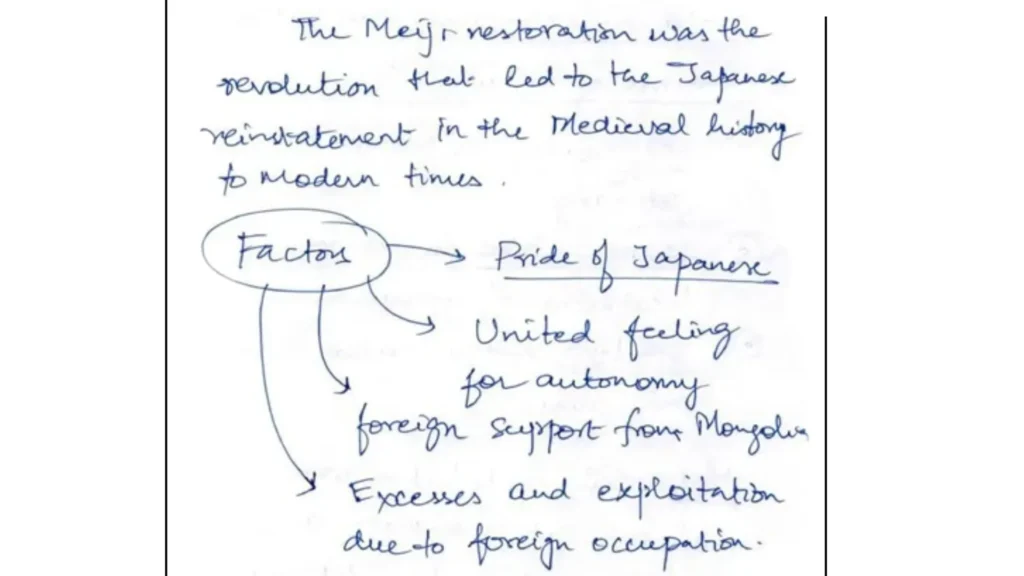 The Meiji restoration was the
revolution that led to the Japanese
reinstatement in the Medieval history
to modern times.
Factors
Pride of Japanese
United feeling
for autonomy
foreign support from Mongolia
Excesses and exploitation
due to foreign occupation.